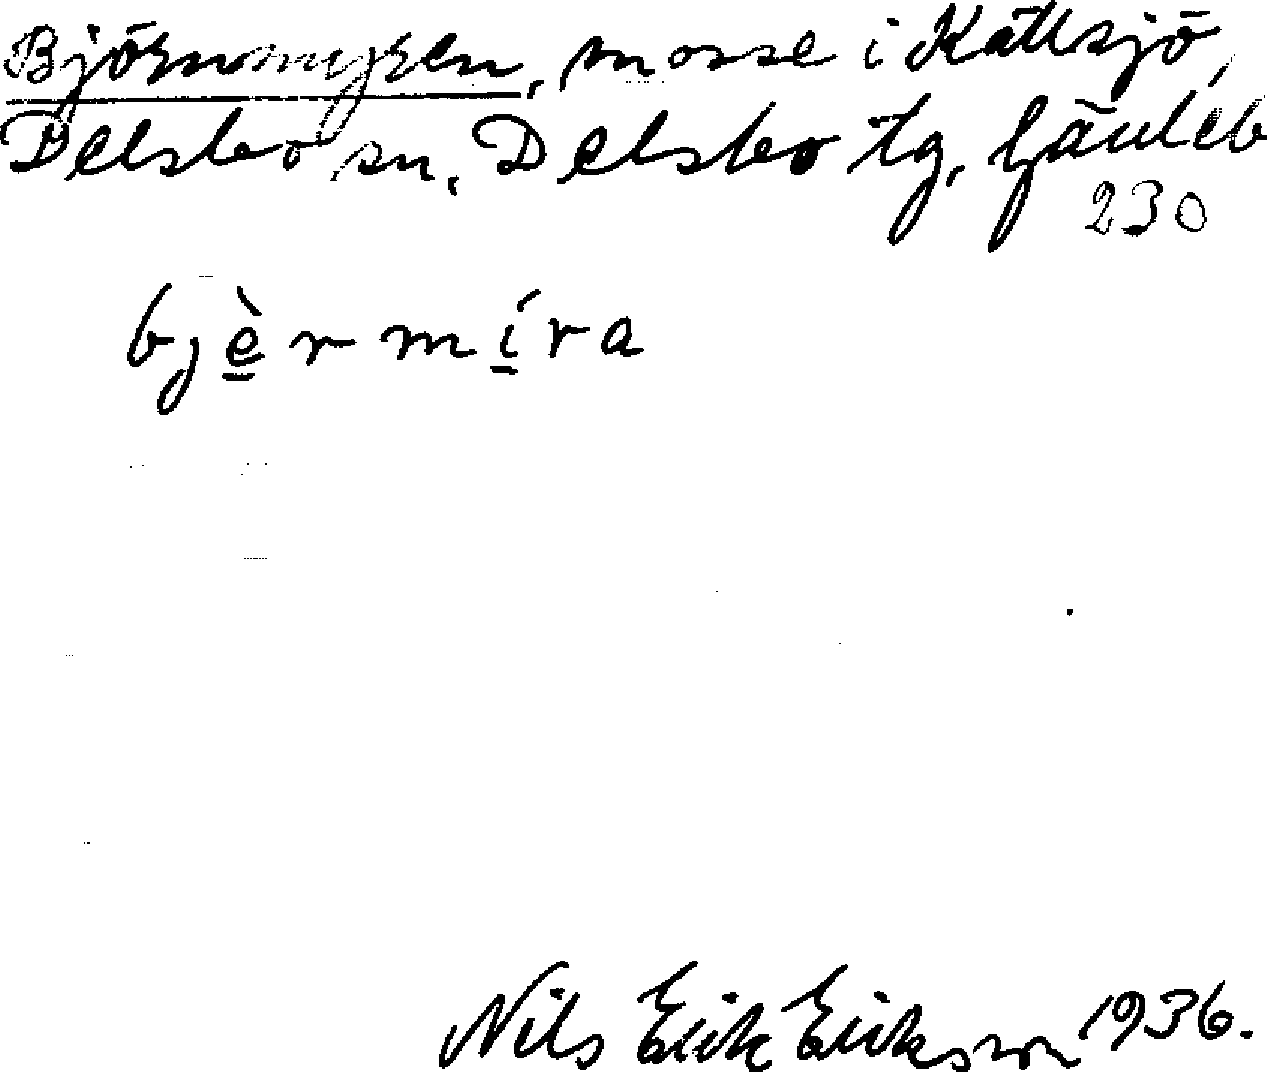 Björnmyren, mosse i Kättsjö,
Delsbo sn, Delsbo tg, Gävleb
230
bjèrmíra
Nils Erik Eriksson 1936.